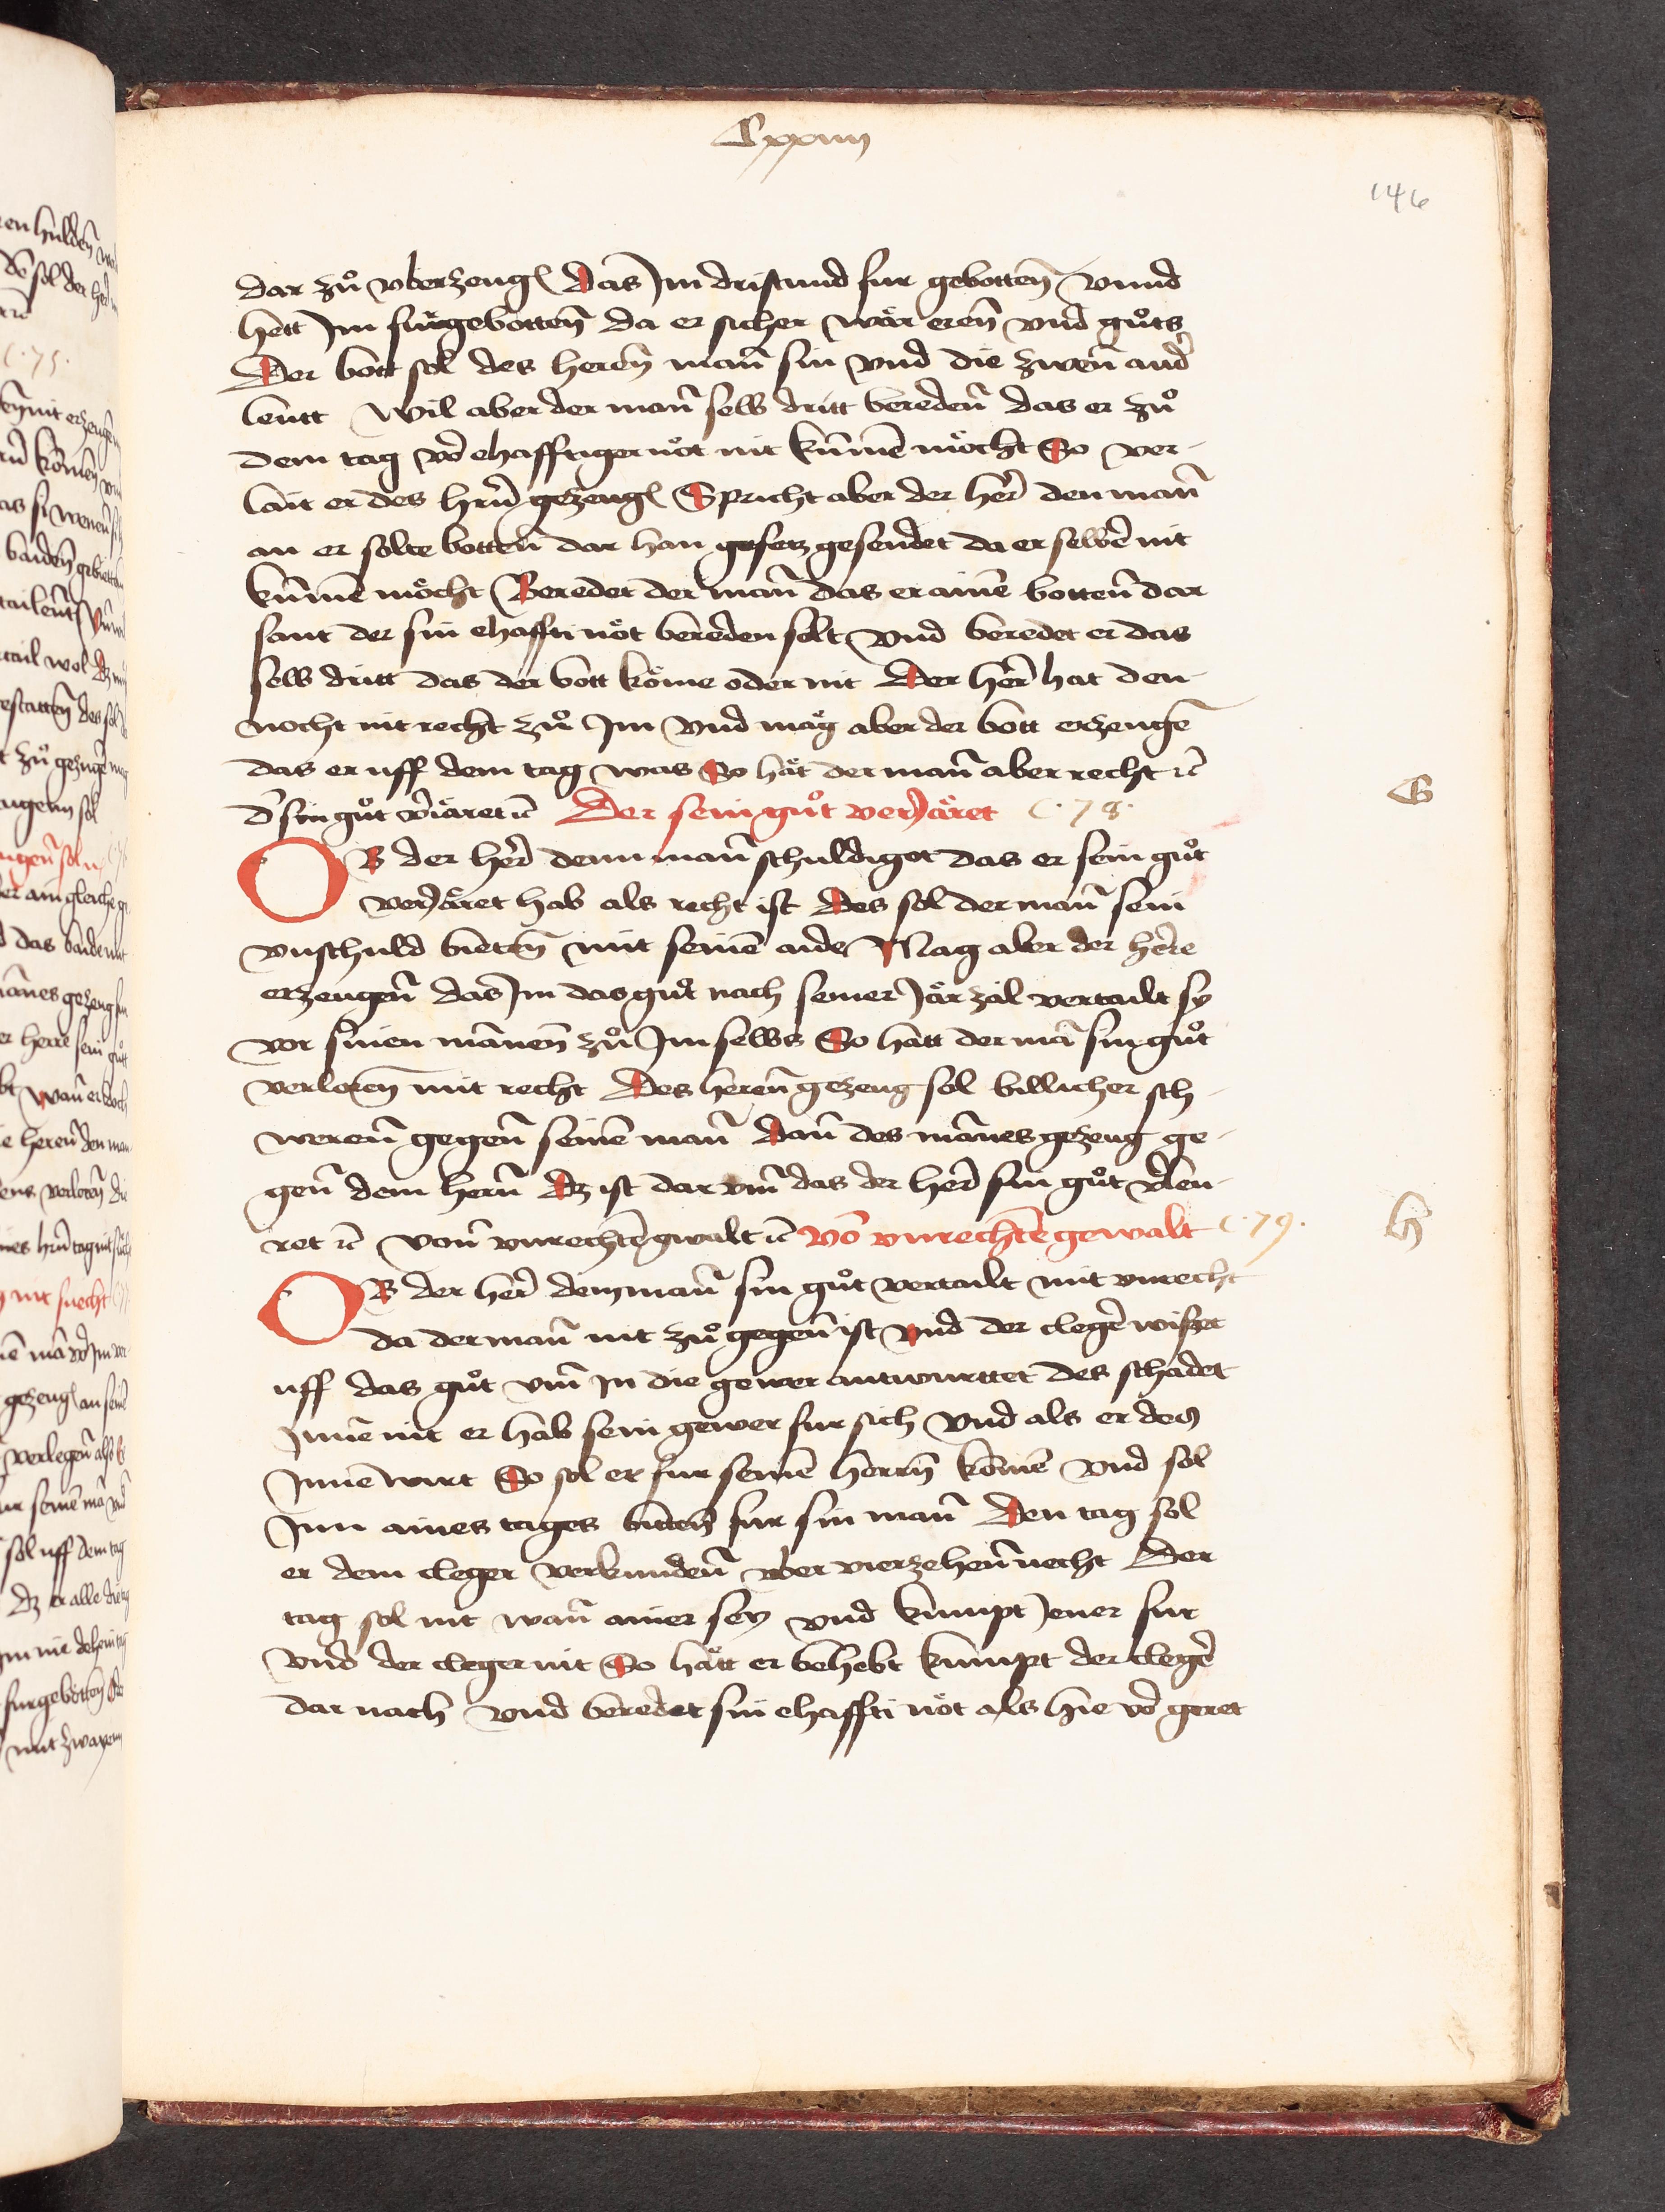 Cxxiiij
146
dar zů vberzeugen Das Im dristund fur gebotten vnnd
hett Im furgebotten da er sicher wär eren vnd gůts
Der bott sol des heren man̄ sin vnd die zwen and̄
leutt Wil aber der man̄ selb dritt bereden̄ das er zů
dem tag vō ehafftiger nöt nit kum̄en möcht So ver-
lait er des hrn̄ gezeug Spricht aber der her̄ den man̄
an er solte botten̄ dar han gesendet da er selber nit
kum̄en möcht Beredet der man̄ das er ainē botten̄ dar
sant der sin ehaffti nöt bereden solt vnd beredet er das
selb dritt das der bott köme oder nit Der her̄ hat den-
nocht nit recht zů Im vnd mag aber der bott erzeugē
das er uff dem tag was So hät der man̄ aber recht ꝛc
D̄ sin gůt v̄iäret ꝛc Der sein gůt verJäret C. 78.
G
OB der her̄ denn man̄ schuldiget das er sein gůt
verJäret hab als recht ist Des sol der man̄ sein
vnschuld bieten̄ mit seinē aide Mag aber der here
erzeugen̄ das Im das gůt nach seiner Jär zäl vertailt sy
vor sinen man̄en̄ zů Im selbs So hatt der mā sin gůt
verloren̄ mit recht Des heren̄ gezeug sol billicher sch-
weren̄ gegen̄ seinē man̄ Dan̄ des man̄es gezeug ge-
gen̄ dem hern̄ Dz ist dar vm̄ das der her̄ sin gůt v̄leu-
ret ꝛc Von̄ vnrechtē gwalt ꝛc Vō vnrechtē gewalt C. 79.
H
OB der her̄ dem man̄ sin gůt vertailt mit vnrecht
da der man̄ nit zů gegen̄ ist vnd der cleger̄ wiset
uff das gůt vm̄ In die gewer antwurttet Des schadet
Jnnē nit er hab sein gewer fur sich vnd als er des
Jnnē wirt So sol er fur seinē herrn̄ kömē vnd sol
Jnn aines tages bitten̄ fur sin man̄ Den tag sol
er dem cleger verkunden̄ vber vierzehen̄ necht Der
tag sol nit wan̄ ainer sey vnd kumpt Jener fur
vnd der cleger nit So hätt er behebt kumpt der cleger̄
dar nach vnd beredet sin ehaffti nöt als hie vō geret